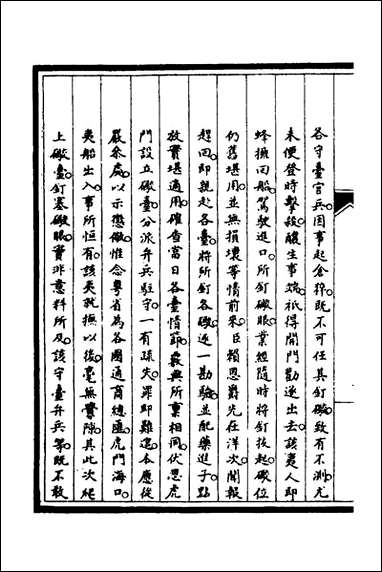 各守臺官兵因事起倉猝既不可任其釘礮致有不測尤
未便登時擊殺釀生事端祇得開門勸逐出去該夷人即
蜂擁回船駕駛進口所釘礮眼業經隨時將釘拔起礮位
仍舊堪用並無損壞等情前來臣賴恩爵先在洋次聞報
趕回即親赴各臺將所釘各礮逐一勘驗並配藥進子點
放實堪適用確查當日各臺情節覈與所稟相同伏思虎
門設立礮臺分派弁兵駐守一有疎失罪即難逭本應從
嚴參處以示懲儆惟念粵省為各國通商總匯虎門海口
夷船出入事所恒有該夷就撫以後毫無釁隙其此次爬
上礮臺釘塞礮眼實非意料所及該守臺弁兵等既不敢